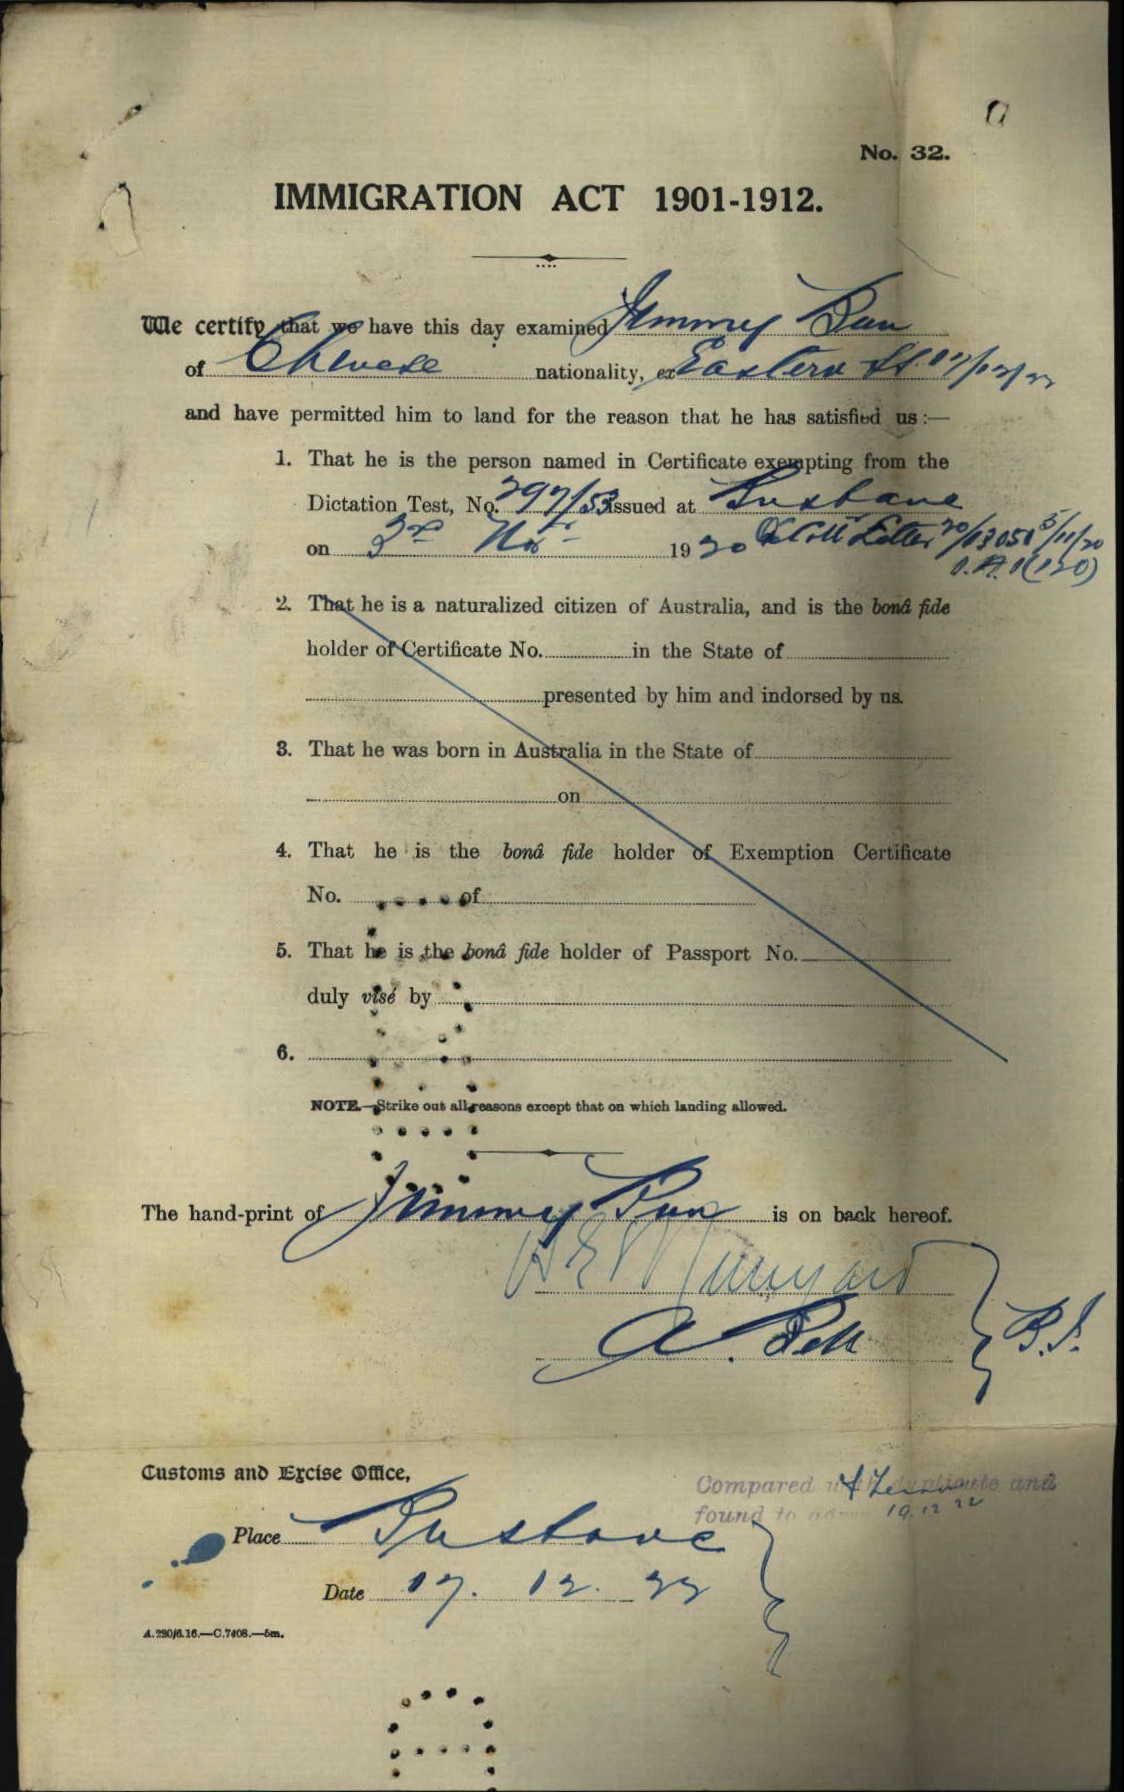 No. 32.
IMMIGRATION ACT 1901-1912.
We certify that we have this day examined Jimmy Bun
of Chinese nationality, ex Eastern 17/12/22
and have permitted him to land for the reason that he has satisfied us :—
1. That he is the person named in Certificate exempting from the
Dictation Test, No. 297/53 issued at Brisbane
on 3rd Nov 1920 Letter 20/13051 5/11/20
(120)
2. That he is a naturalized citizen of Australia, and is the bonâ fide
holder of Certificate No. in the State of
presented by him and indorsed by us.
3. That he was born in Australia in the State of
on
4. That he is the bonâ fide holder of Exemption Certificate
No. of
5. That he is the bonâ fide holder of Passport No.
duly visé by
6.
NOTE.—Strike out all reasons except that on which landing allowed.
The hand-print of Jimmy Bun is on back hereof.
A. Bell
B.I.
Customs and Excise Office,
Compared with duplicate and
found to agree 19.12.22
Place Brisbane
Date 17. 12. 22
A.220/6.16.—C.7408.—5m.